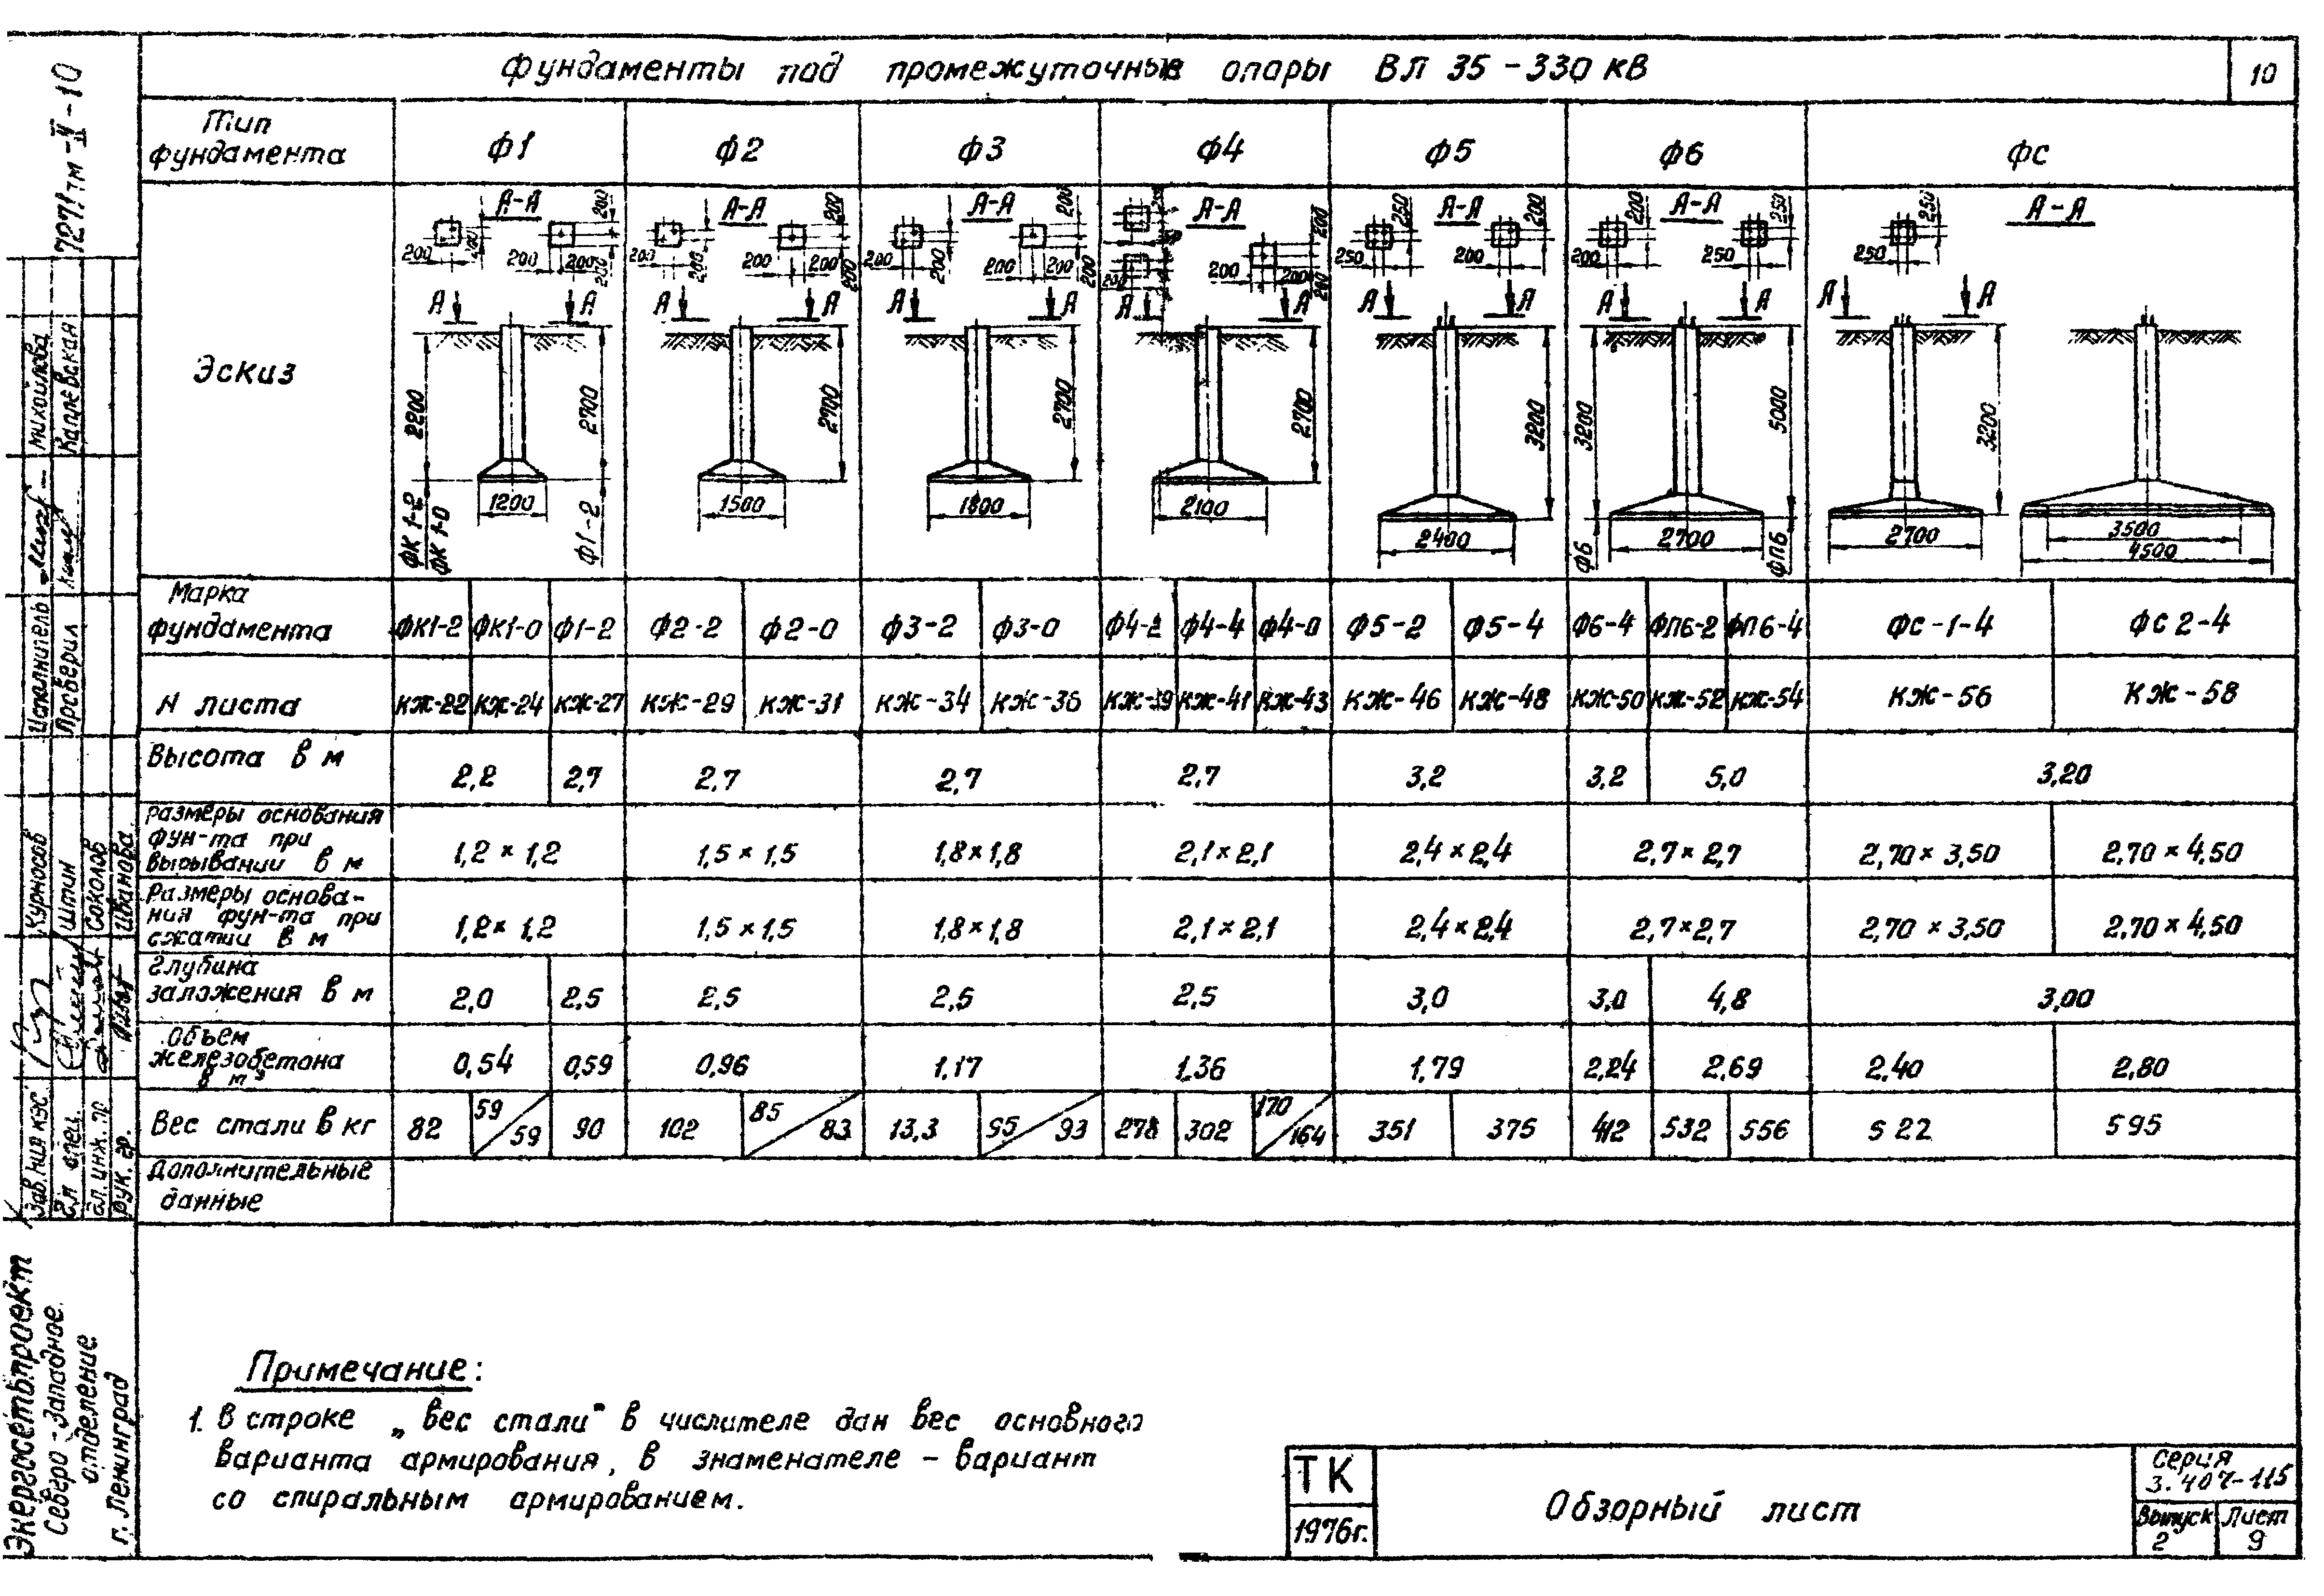 Фундаменты под промежуточные опоры ВЛ 35-330 кВ
10
7271тм-II-10
Тип фундамента Ф1 Ф2 Ф3 Ф4 Ф5 Ф6 ФС
Эскиз
А-А А-А А-А А-А А-А А-А А-А
200 200 200 200 200 200 200 200 200 200 200 200 200 200 200 250 250 200 200 200 200 250 250 250 250
А А А А А А А А А А А А А А
2200 2700 2700 2700 2700 3200 3200 5000 3200
1200 1500 1800 2100 2400 2700 2700 3500
4500
ФК 1-2
ФК 1-0
Ф1-2
Ф6
ФП6
Марка фундамента ФК1-2 ФК1-0 Ф1-2 Ф2-2 Ф2-0 Ф3-2 Ф3-0 Ф4-2 Ф4-4 Ф4-0 Ф5-2 Ф5-4 Ф6-4 ФП6-2 ФП6-4 ФС-1-4 ФС 2-4
N листа КЖ-22 КЖ-24 КЖ-27 КЖ-29 КЖ-31 КЖ-34 КЖ-36 КЖ-39 КЖ-41 КЖ-43 КЖ-46 КЖ-48 КЖ-50 КЖ-52 КЖ-54 КЖ-56 КЖ-58
Высота в м 2,2 2,7 2,7 2,7 2,7 3,2 3,2 5,0 3,20
Размеры основания
фун-та при
вырывании в м 1,2 × 1,2 1,5 × 1,5 1,8×1,8 2,1×2,1 2,4×2,4 2,7×2,7 2,70 × 3,50 2,70 × 4,50
Размеры основа-
ния фун-та при
сжатии в м 1,2× 1,2 1,5 ×1,5 1,8×1,8 2,1×2,1 2,4×2,4 2,7×2,7 2,70 × 3,50 2,70 × 4,50
Глубина
заложения в м 2,0 2,5 2,5 2,5 2,5 3,0 3,0 4,8 3,00
Объем
железобетона
в м³ 0,54 0,59 0,96 1,17 1,36 1,79 2,24 2,69 2,40 2,80
Вес стали в кг 82 59/59 90 102 85/83 13,3 95/93 278 302 170/164 351 375 412 532 556 522 595
Дополнительные
данные
Примечание:
1. В строке „Вес стали" в числителе дан вес основного
варианта армирования, в знаменателе - вариант
со спиральным армированием.
ТК
1976г.
Обзорный лист
Серия
3.407-115
Выпуск
2
Лист
9
Исполнитель Михайлова
Проверил Каплевская
Зав. НИЛ КЭС Курносов
Гл. спец. Штин
Гл. инж. пр. Соколов
Рук. гр. Иванова
Энергосетьпроект
Северо-Западное
отделение
г. Ленинград